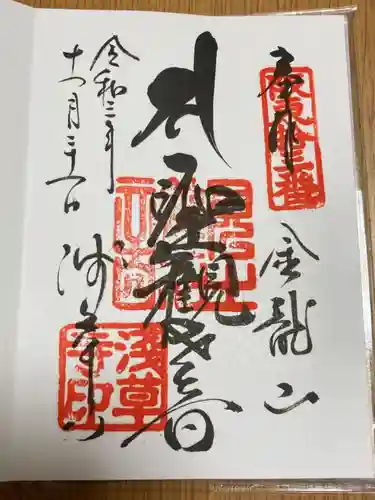 奉拝
坂東拾三番
金龍山
聖観世音
浅草寺
浅草寺印
令和二年
十二月三十一日